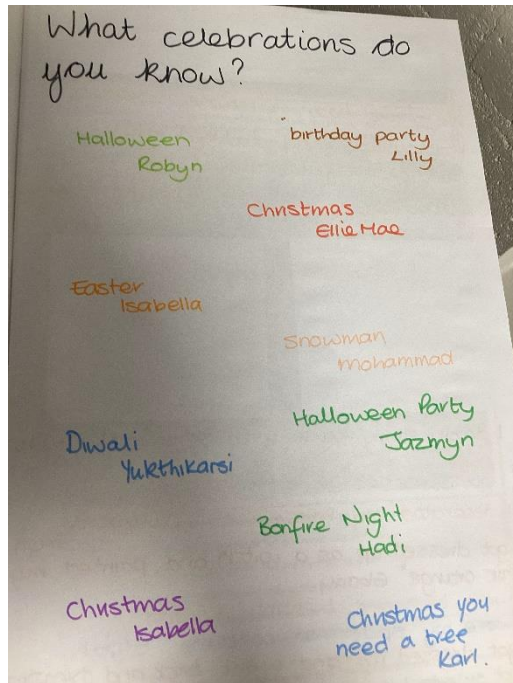 What celebrations do
you know?
Halloween
Robyn
birthday party
Lilly
Christmas
Ellie Mae
Easter
Isabella
Snowman
Mohammad
Halloween Party
Jazmyn
Diwali
Yukthikarsi
Bonfire Night
Hadi
Christmas
Isabella
Christmas you
need a tree
Karl.